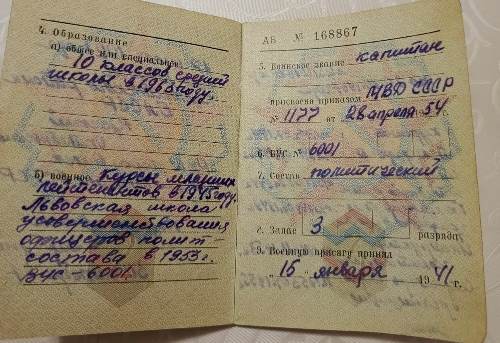 4. Образование
а) общее или специальное
10 классов средней
школы в 1963 году.
б) военное Курсы младших
лейтенантов в 1945 году.
Львовская школа
усовершенствования
офицеров полит-
состава в 1953 г.
ВУС-6001.
АБ № 168867
5. Воинское звание капитан
присвоена приказом МВД СССР
№ 1177 от 28 апреля 54 г.
6. ВУС № 6001
7. Состав политический
8. Запас 3 разряда
9. Военную присягу принял
"15" января 1941 г.